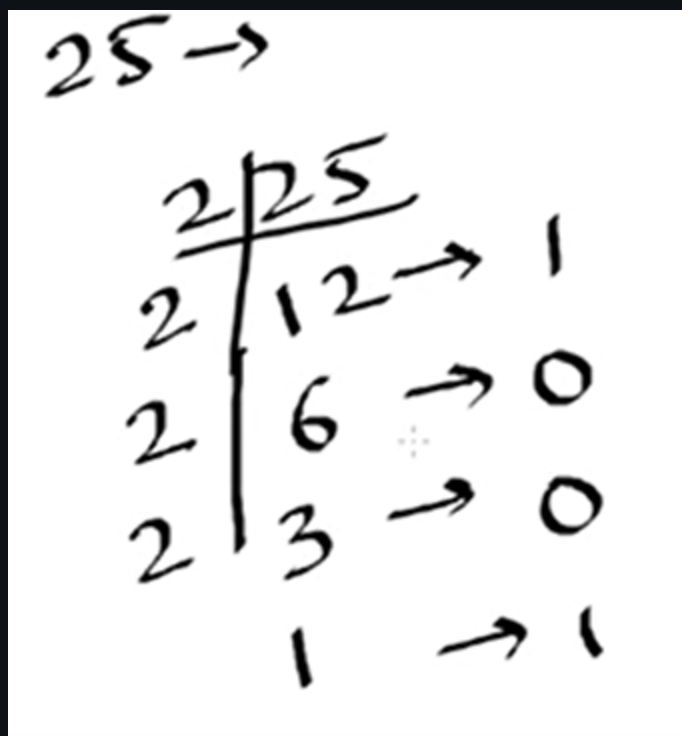 25 →
2 | 25
2 | 12 → 1
2 | 6 → 0
2 | 3 → 0
1 → 1